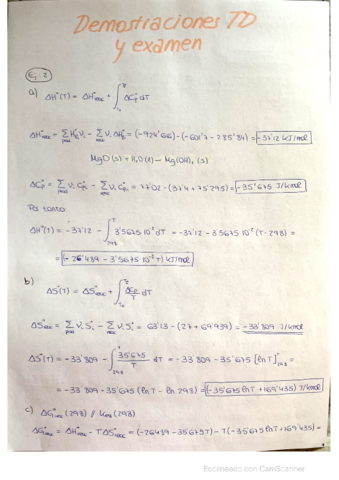 Demostraciones TD
y examen
Ej. 2
a) ΔHº(T) = ΔHº₂₉₈K + ∫ ΔCºp dT
ΔHº₂₉₈K = Σ Hºfi νi - Σ νi ΔHºfi = (-924'66) - (-601'7 - 285'84) = -37'12 kJ/mol
MgO(s) + H₂O(l) → Mg(OH)₂ (s)
ΔCºp = Σ νi Cºpi - Σ νi Cºpi = 77'02 - (37'4 + 75'295) = -35'675 J/kmol
Por tanto
ΔHº(T) = -37'12 - ∫₂₉₈ᵀ 3'5675·10⁻² dT = -37'12 - 3'5675·10⁻² (T - 298) =
= (-26'489 - 3'5675·10⁻² T) kJ/mol
b) ΔSº(T) = ΔSº₂₉₈K + ∫ ΔCp/T dT
ΔSº₂₉₈K = Σ νi Sºi - Σ νi Sºi = 63'13 - (27 + 69'939) = -33'809 J/kmol
ΔSº(T) = -33'809 - ∫₂₉₈ᵀ 35'675/T dT = -33'809 - 35'675 [ln T]ᵀ₂₉₈ =
= -33'809 - 35'675 (ln T - ln 298) = (-35'675 ln T + 169'435) J/kmol
c) ΔGº (298) //
ΔGº = ΔHº - TΔSº = (-26489 - 35'675T) - T(-35'675 ln T + 169'435) =
Escaneado con CamScanner